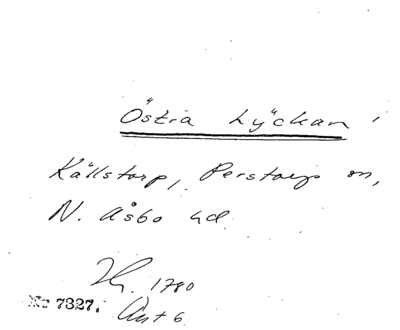 Östra Lyckan
Källstorp, Perstorps sn,
N. Åsbo hd
1780
Nr 7327. Ant 6